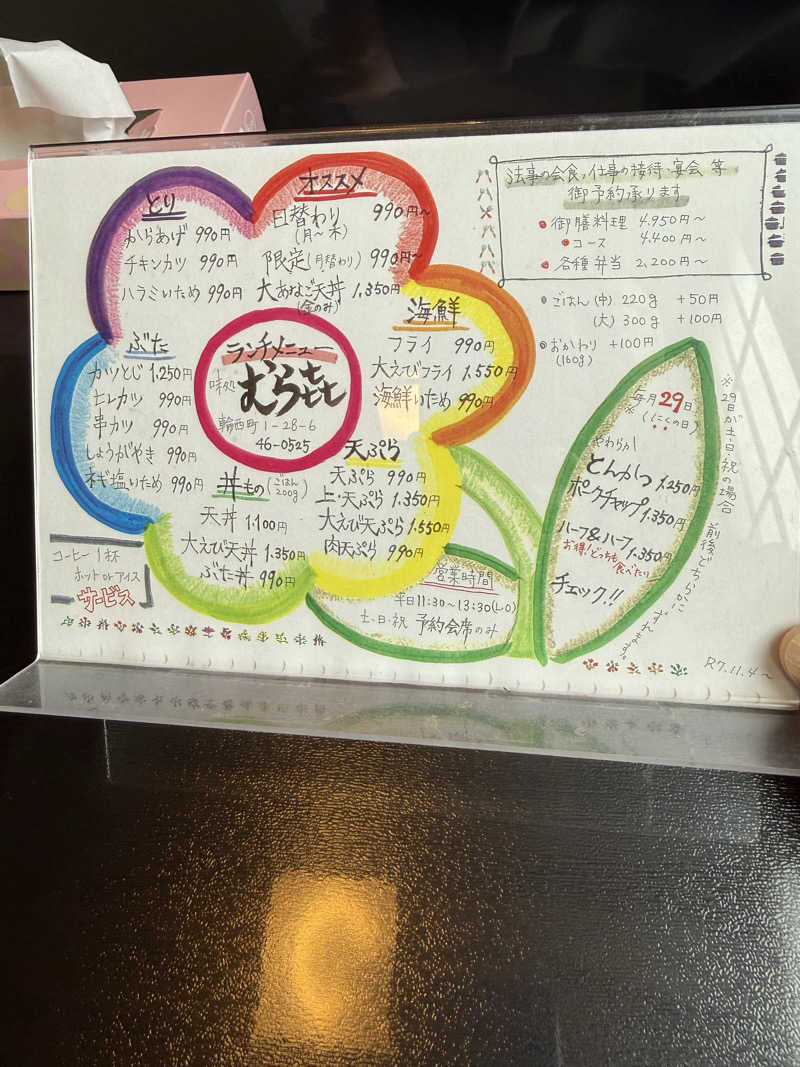 とり
からあげ 990円
チキンカツ 990円
ハラミいため 990円
オススメ
日替わり 990円～
(月～木)
限定(月替わり) 990円～
大あなご天丼 1.350円
(金のみ)
海鮮
フライ 990円
大えびフライ 1.550円
海鮮いため 990円
ぶた
カツとじ 1.250円
ヒレカツ 990円
串カツ 990円
しょうがやき 990円
ネギ塩いため 990円
ランチメニュー
味処
むら㐂
輪西町 1-28-6
46-0525
天ぷら
天ぷら 990円
上・天ぷら 1.350円
大えび天ぷら 1.550円
肉天ぷら 990円
丼もの(ごはん200g)
天丼 1.100円
大えび天丼 1.350円
ぶた丼 990円
コーヒー1杯
ホット or アイス
サービス
法事の会食、仕事の接待・宴会 等
御予約承ります
御膳料理 4.950円～
コース 4.400円～
各種弁当 2,200円～
ごはん (中) 220g +50円
(大) 300g +100円
おかわり +100円
(160g)
毎月29日
※(にくの日)
やわらか
とんかつ 1.250円
ポークチャップ 1.350円
ハーフ&ハーフ 1.350円
お得!どっちも食べたい
チェック!!
※29日が土・日・祝の場合
前後どちらかに
営業時間
平日11:30～13:30(L・O)
土・日・祝 予約会席のみ
R7.11.4～